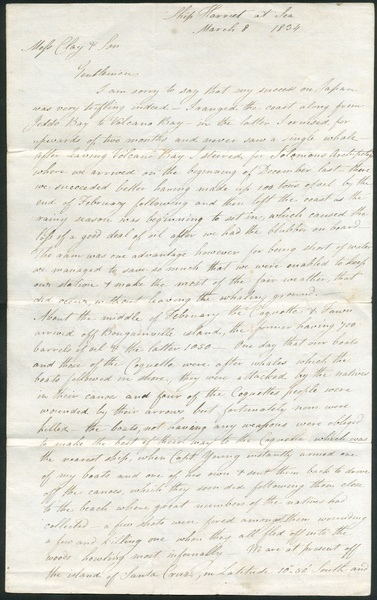 Ship Harriet at Sea
March 8 1834
Messrs Clay & Son
Gentlemen
I am sorry to say that my success on Japan
was very trifling indeed - I ranged the coast along from
Jeddo Bay to Volcano Bay - in the latter I cruised for
upwards of two months and never saw a single whale
after leaving Volcano Bay I steered for Solomons Archipelago
where we arrived on the beginning of December last there
we succeeded better having made up 100 tons of oil by the
end of February following and then left the coast as the
rainy season was beginning to set in, which caused the
loss of a good deal of oil after we had the blubber on board
The rain was one advantage however for being short of water
we managed to save so much that we were enabled to keep
our station & make the most of the fair weather that
did occur, without leaving the whaling ground -
About the middle of February the Coquette & Fawn
arrived off Bougainville island, the former having 700
barrels of oil & the latter 1050 - One day that our boats
and those of the Coquette were after whales which the
boats followed in shore, they were attacked by the natives
in their canoes and four of the Coquettes people were
wounded by their arrows but fortunately none were
killed - the boats not having any weapons were obliged
to make the best of their way to the Coquette which was
the nearest ship, when Capt Young instantly armed one
of my boats and one of his own & sent them back to drive
off the canoes, which they succeeded following them close
to the beach where great numbers of the natives had
collected - a few shots were fired amongst them wounding
a few and killing one when they all fled off into the
woods howling most infernally - We are at present off
the island of Santa Cruz, in Latitude 10° 50' South and